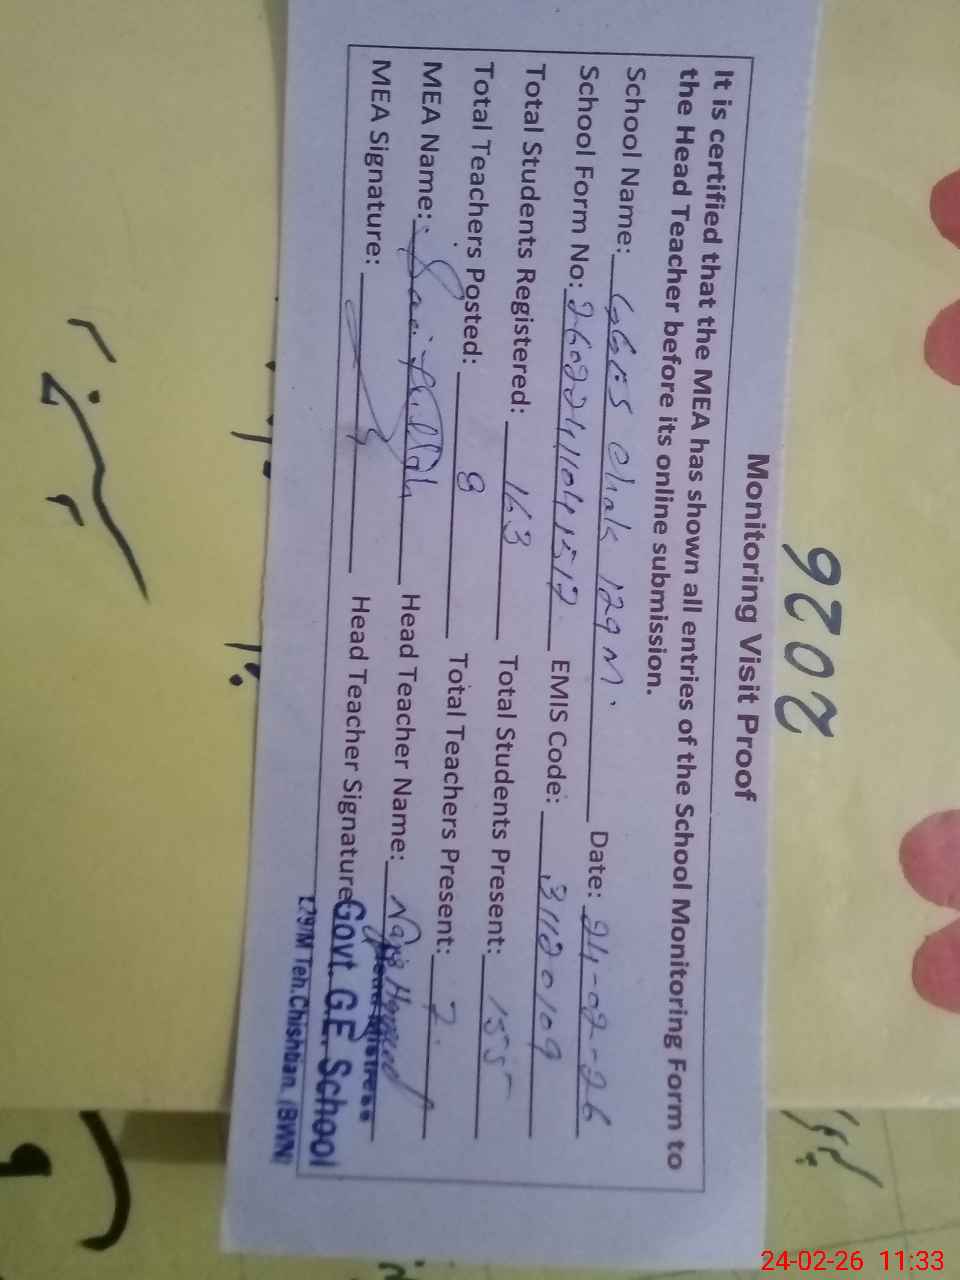 2026
Monitoring Visit Proof
It is certified that the MEA has shown all entries of the School Monitoring Form to
the Head Teacher before its online submission.
School Name: GGES Chak 129 M. Date: 24-02-26
School Form No: EMIS Code: 31120109
Total Students Registered: 163 Total Students Present: 155
Total Teachers Posted: 8 Total Teachers Present: 7
MEA Name: Head Teacher Name:
MEA Signature: Head Teacher Signature
Head Mistress
Govt. G.E. School
129/M Teh.Chishtian. (BWN)
24-02-26 11:33